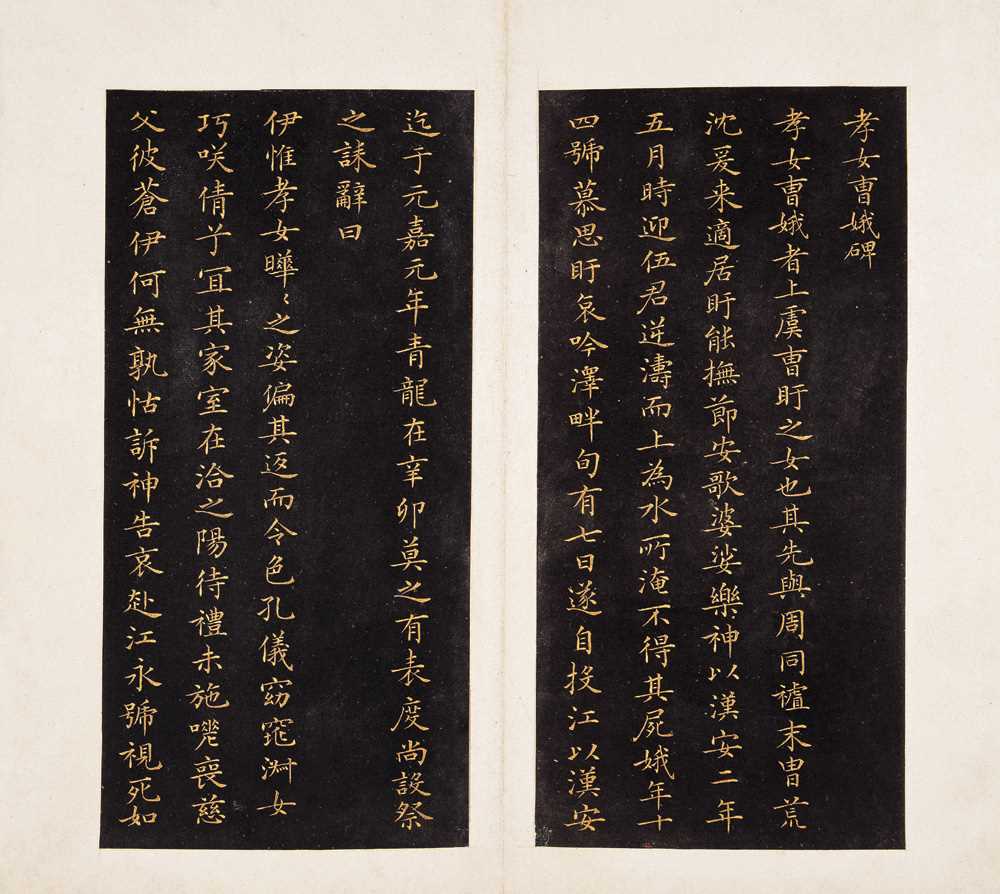 孝女曺娥碑
孝女曺娥者上虞曺盱之女也其先與周同祖末胄荒
沈爰来適居盱能撫節安歌婆娑樂神以漢安二年
五月時迎伍君逆濤而上為水所淹不得其屍娥年十
四號慕思盱哀吟澤畔旬有七日遂自投江以漢安
迄于元嘉元年青龍在辛卯莫之有表度尚設祭
之誄辭曰
伊惟孝女曄〻之姿偏其返而令色孔儀窈窕淑女
巧咲倩兮冝其家室在洽之陽待禮未施嗟喪慈
父彼蒼伊何無孰怙訴神告哀赴江永號視死如